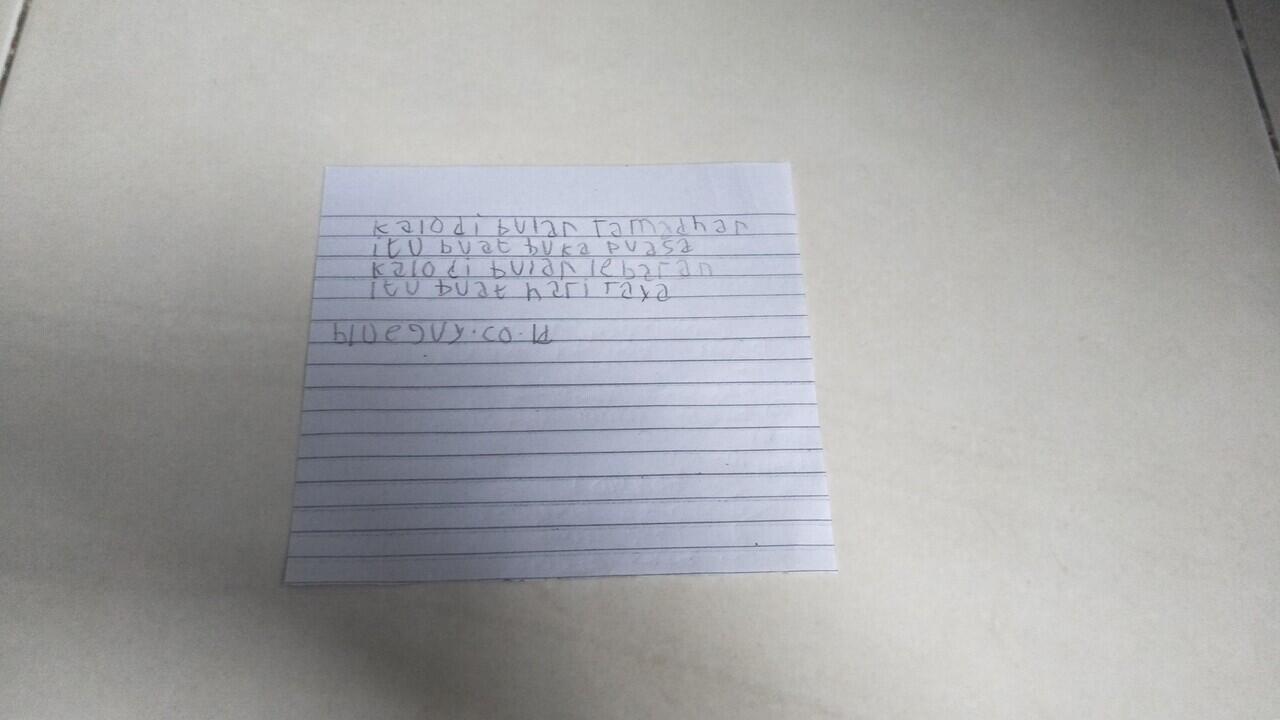 kalo di bulan ramadhan
itu buat buka puasa
kalo di bulan lebaran
itu buat hari raya
blueguy.co.id